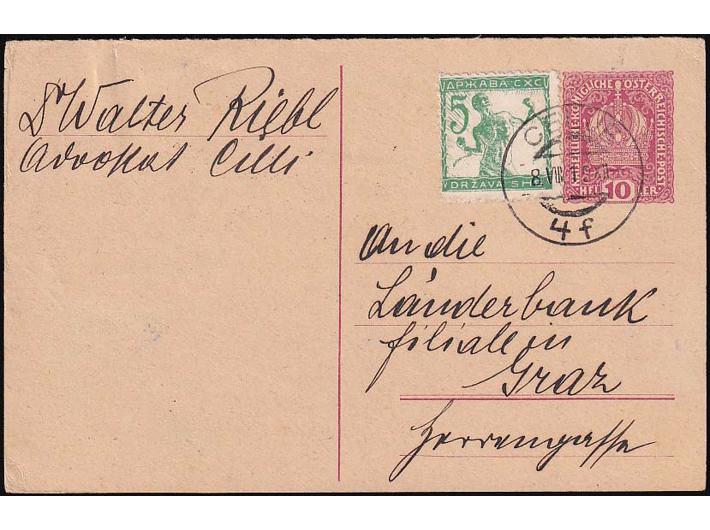 Dr Walter Riebl
Advokat Cilli
ДРЖАВА СХС
5
DRŽAVA SHS
KAISERLICHE KÖNIGLICHE ÖSTERREICHISCHE POST
HELLER
10
8. VIII. 19
4f
An die
Länderbank
filiale in
Graz
Herrengasse